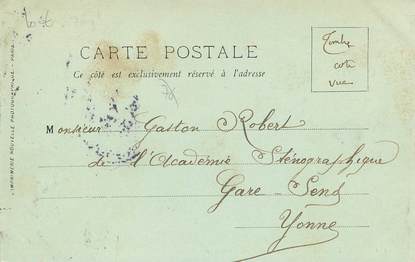 CARTE POSTALE
Ce côté est exclusivement réservé à l'adresse
Timbre
coté
vue
Monsieur Gaston Robert
de l'Académie Sténographique
Gare - Sens
Yonne
IMPRIMERIE NOUVELLE PHOTOGRAPHIQUE - PARIS